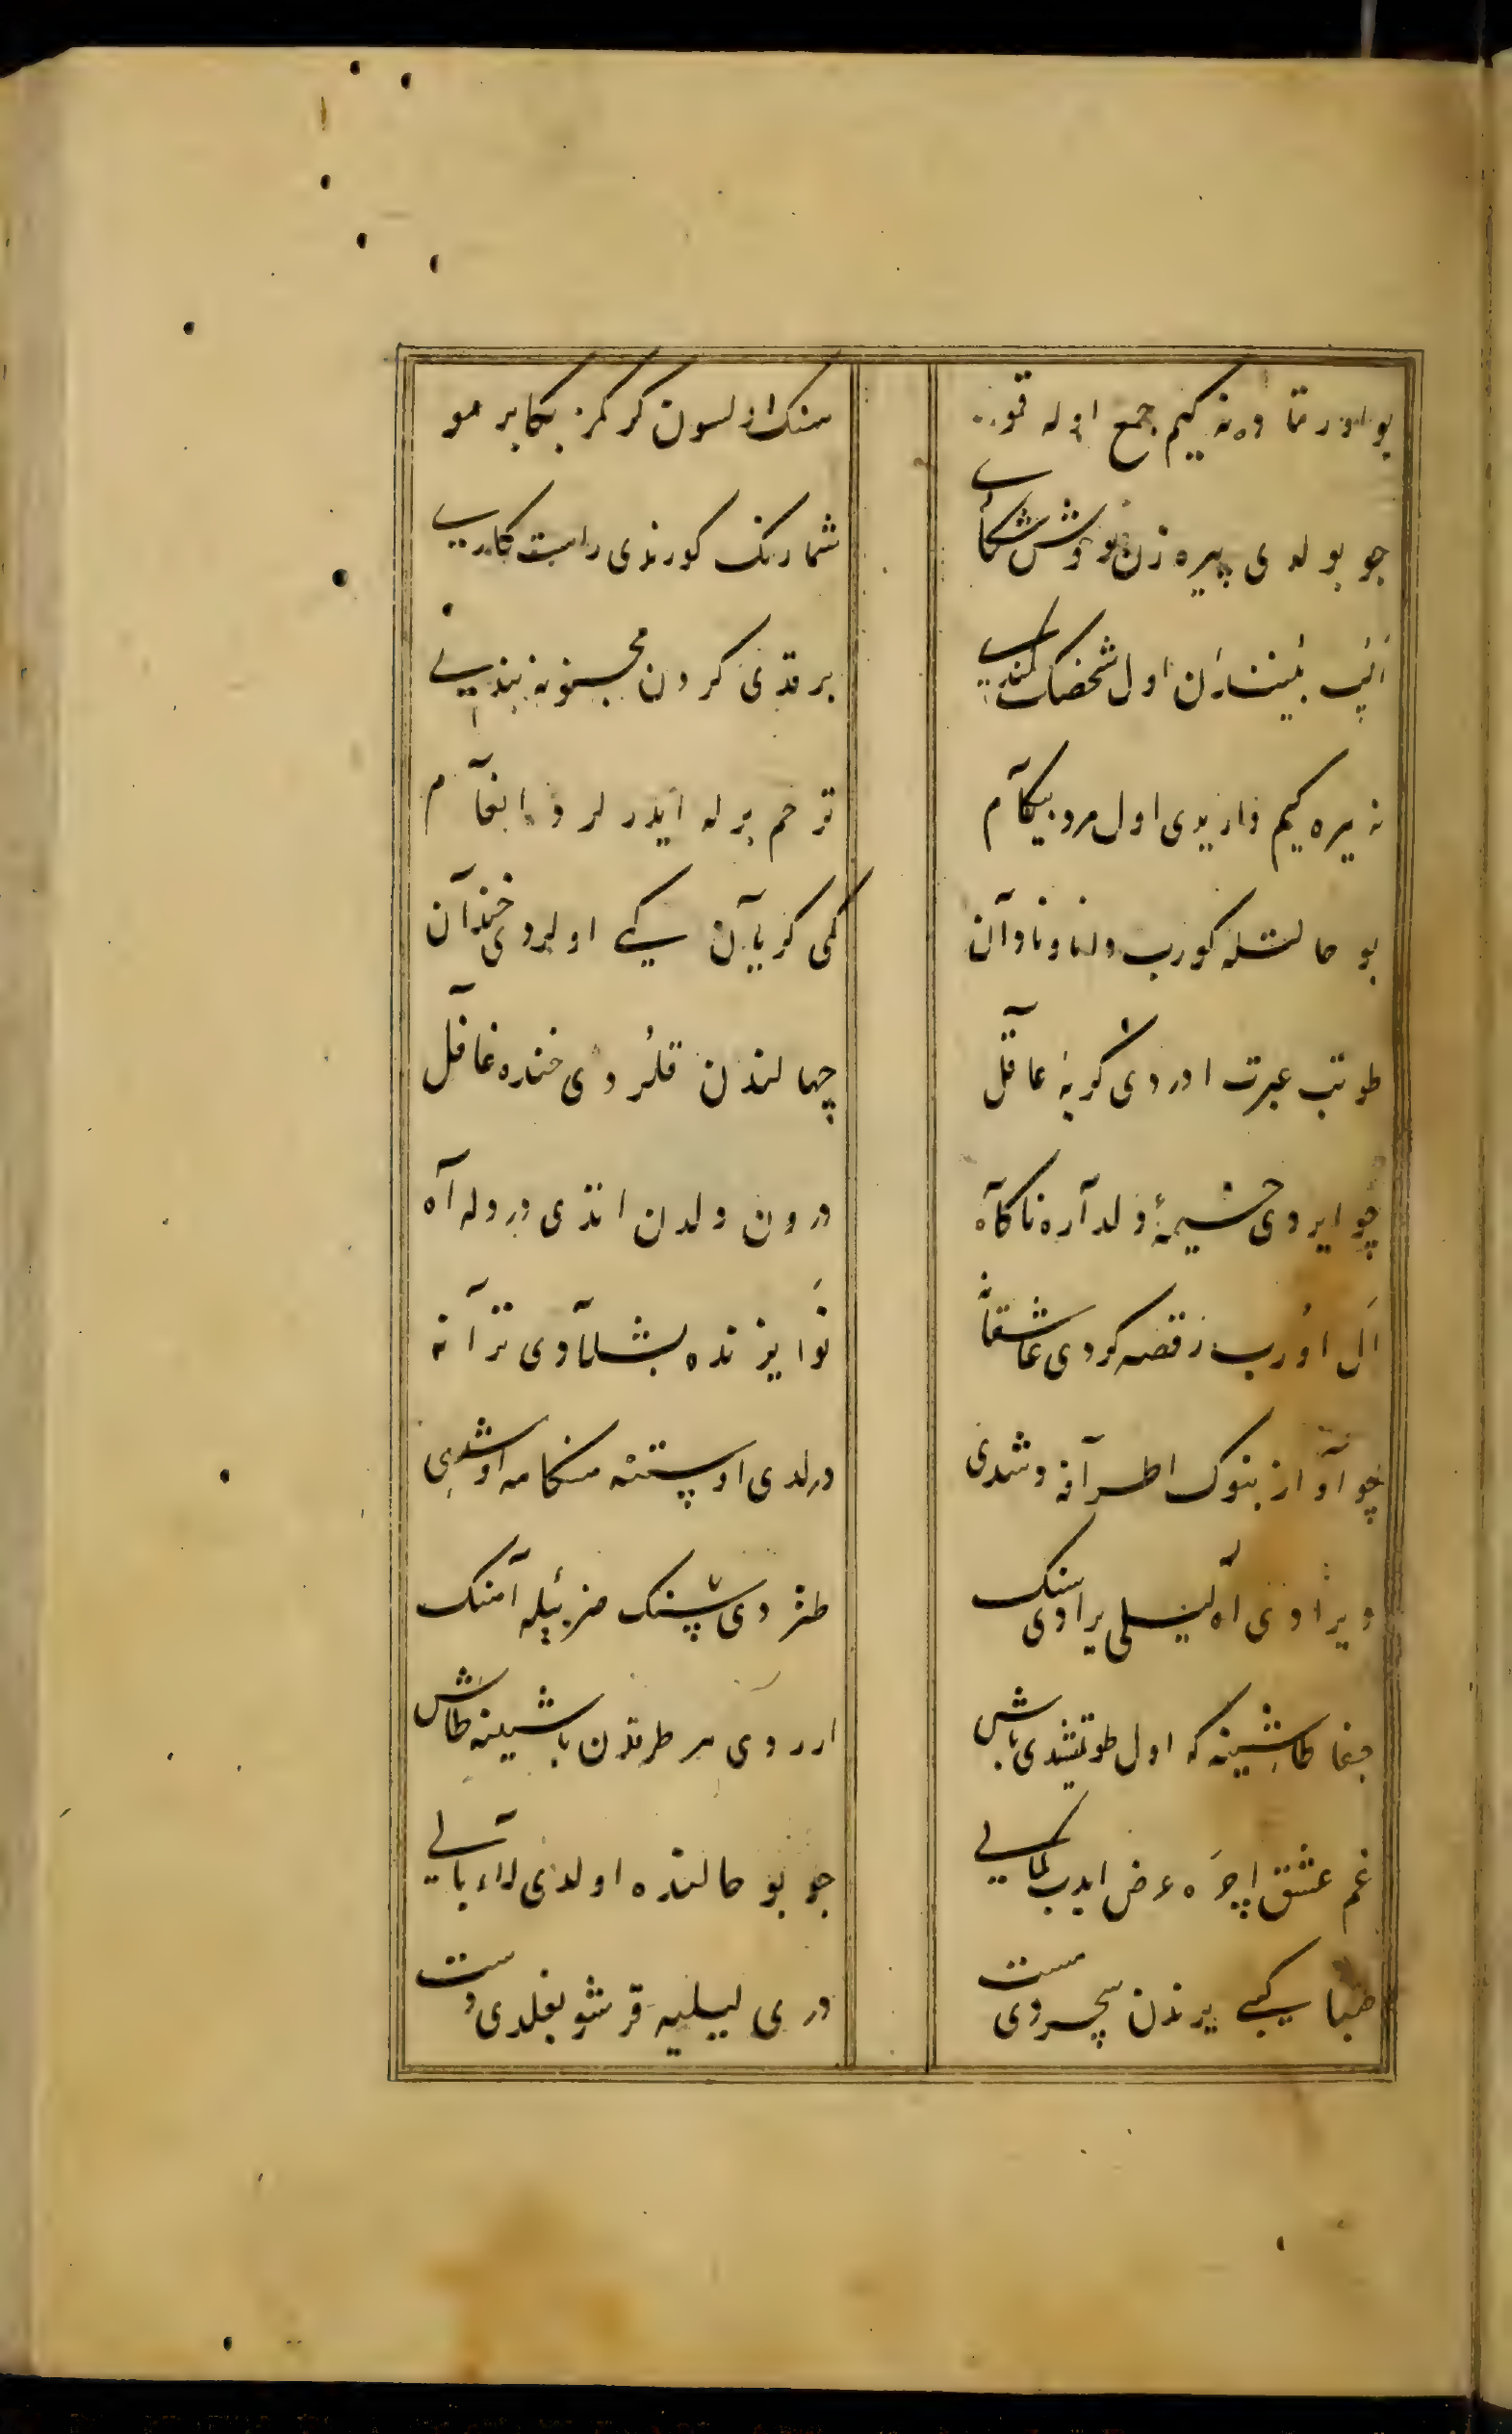 بو اورتا ده نه كیم جمع اوله قمو سنك اولسون كركمز بكا بر مو
چو بولدی پیره زن بو وش شكار شمارنك كورندی راست كار
ایپ بیننه اول شخصك كمند بر قدی كردن مجنونه بند
نه یره كیم واریدی اول مرد بیكام ترحم برله ایدرلردی انعام
بو حالتله كورب دانا و نادان كمی كریان كمی اولردی خندان
طوتب عبرت اوردی كریه عاقل جهالتدن قلردی خنده غافل
چو ایردی خیمهٔ دلداره ناكاه درون دلدن اتدی درد له آه
ال اورب رقصه كردی عاشقانه نوا یزنده بشلادی ترانه
چو آواز بنوك اطرافه دشدی درلدی اوستنه هنكامه اوشدی
ویرردی آه لیلی یرادی سنك طتردی سنك ضربیله آهنك
جفا طاشینه كه اول طوتمشدی باش ارردی هر طرفدن باشینه طاش
غم عشق اچره عرض ایدب كمالی چو بو حالنده اولدی لاابالی
صبا كبی یرندن سچردی مست دری لیلیه قرشو بغلدی دست